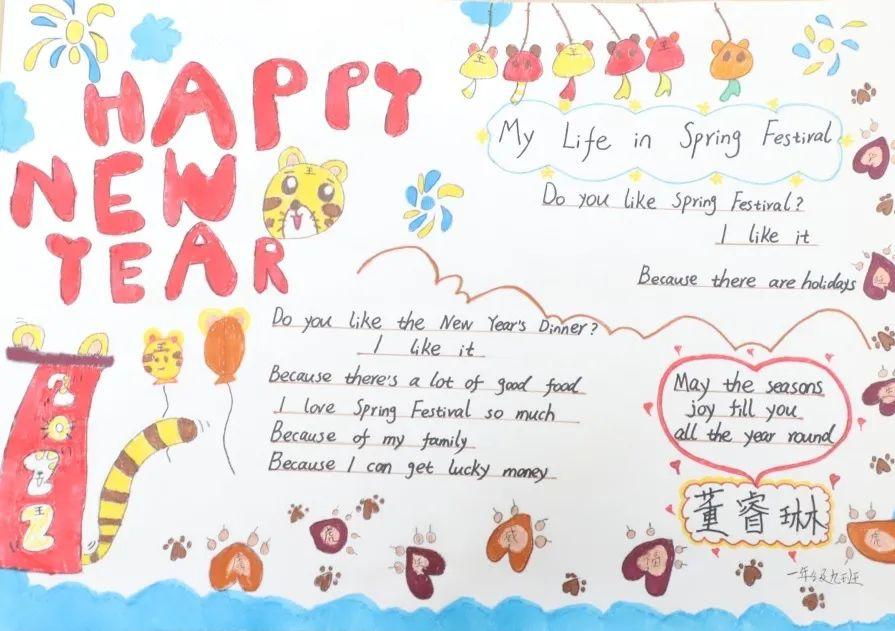 HAPPY
NEW
YEAR
My Life in Spring Festival
Do you like Spring Festival?
I like it
Because there are holidays
Do you like the New Year's Dinner?
I like it
Because there's a lot of good food
I love Spring Festival so much
Because of my family
Because I can get lucky money
May the seasons
joy fill you
all the year round
董睿琳
一年级九班
2022
王
王
王
虎
虎
威
虎